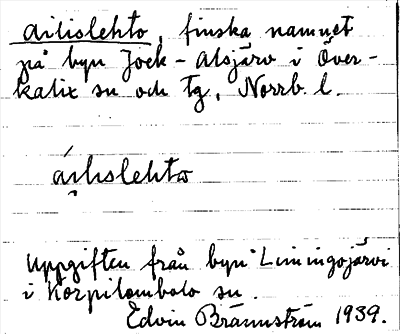 ailislehto, finska namnet
på byn Jock-Alsjärv i Över-
kalix sn och tg, Norrb. l.
áiḷıslehtω
Uppgiften från byn Liningojärvi
i Korpilombolo sn.
Edvin Brännström 1939.